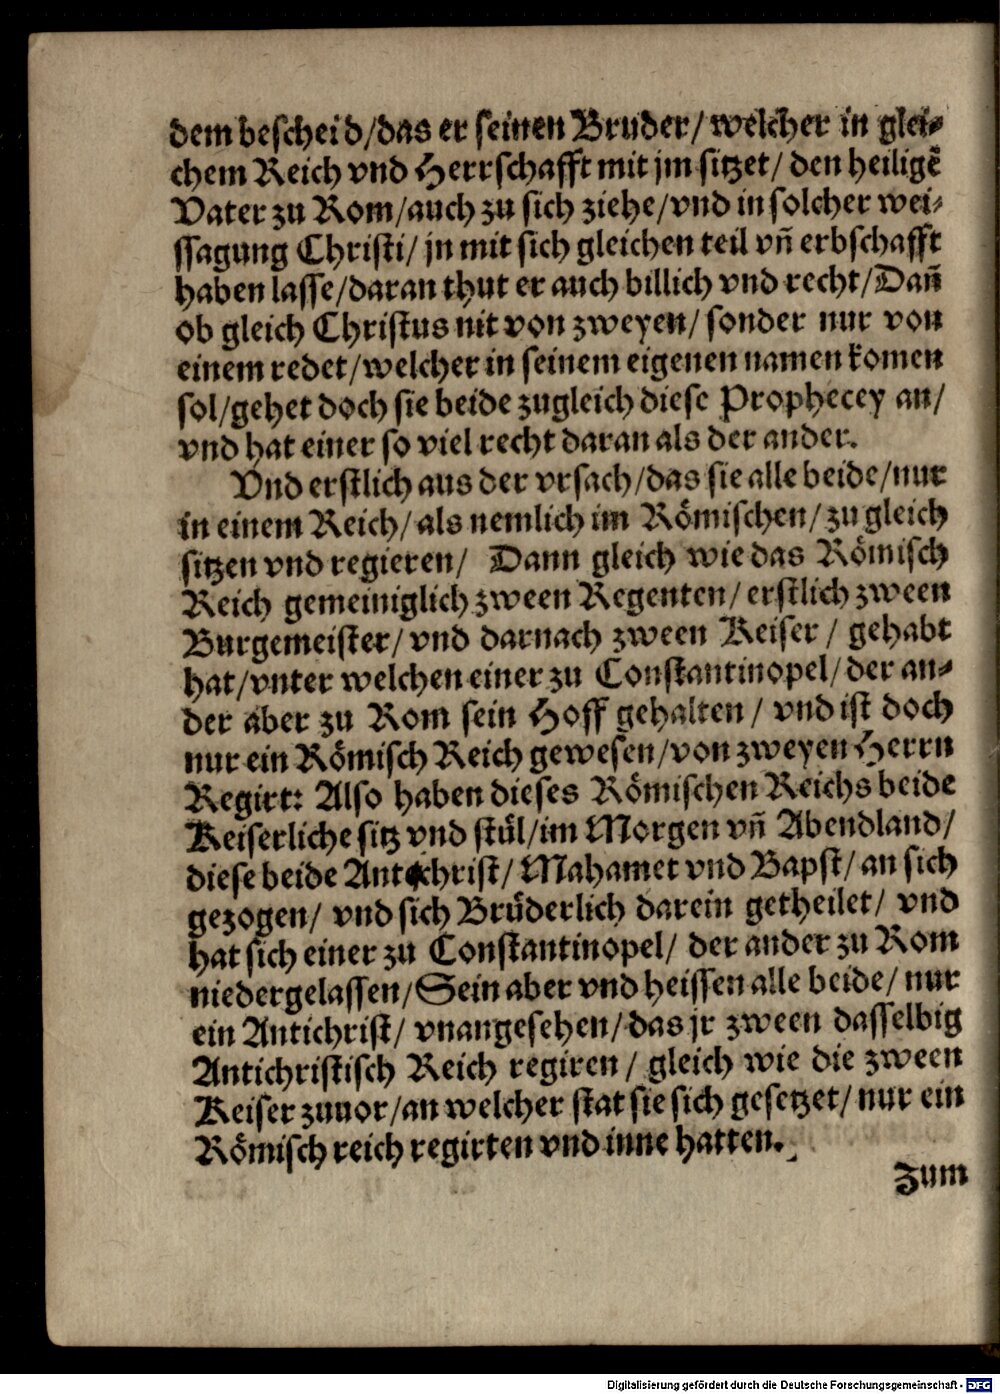 dem bescheid/das er seinen Bruder/welcher in glei⸗
chem Reich vnd Herrschafft mit jm sitzet/ den heiligẽ
Vater zu Rom/auch zu sich ziehe/vnd in solcher wei⸗
ssagung Christi/ jn mit sich gleichen teil vñ erbschafft
haben lasse/daran thut er auch billich vnd recht/Dañ
ob gleich Christus nit von zweyen/ sonder nur von
einem redet/welcher in seinem eigenen namen komen
sol/gehet doch sie beide zugleich diese Prophecey an/
vnd hat einer so viel recht daran als der ander.
Vnd erstlich aus der vrsach/das sie alle beide/nur
in einem Reich/als nemlich im Römischen/zu gleich
sitzen vnd regieren/ Dann gleich wie das Römisch
Reich gemeiniglich zween Regenten/ erstlich zween
Burgemeister/ vnd darnach zween Keiser / gehabt
hat/vnter welchen einer zu Constantinopel/der an⸗
der aber zu Rom sein Hoff gehalten / vnd ist doch
nur ein Römisch Reich gewesen/von zweyen Herrn
Regirt: Also haben dieses Römischen Reichs beide
Keiserliche sitz vnd stül/im Morgen vñ Abendland/
diese beide Antichrist/ Mahamet vnd Bapst/ an sich
gezogen/ vnd sich Brüderlich darein getheilet/ vnd
hat sich einer zu Constantinopel/ der ander zu Rom
niedergelassen/Sein aber vnd heissen alle beide/ nur
ein Antichrist/ vnangesehen/das jr zween dasselbig
Antichristisch Reich regiren / gleich wie die zween
Keiser zuuor/an welcher stat sie sich gesetzet/ nur ein
Römisch reich regirten vnd inne hatten.
Zum
Digitalisierung gefördert durch die Deutsche Forschungsgemeinschaft - DFG